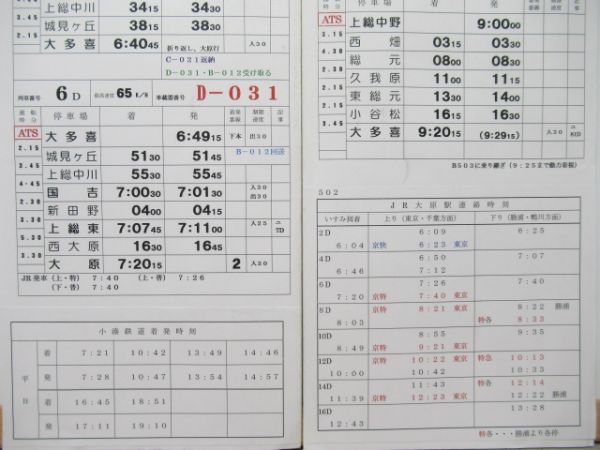 上総中川 34 15 34 30
3.45
城見ヶ丘 38 15 38 30
4.45
大多喜 6:40 45 折り返し、大原行 入30
C-021返納
D-031・B-012受け取る
列車番号 6D 最高速度 65K/H 車載器番号 D-031
運転時分 停車場 着 発 着発番線 制限速度 記事
ATS 大多喜 6:49 15 下本 出30
2.15
城見ヶ丘 51 30 51 45 B-012回送
3.45
上総中川 55 30 55 45
4.45
国吉 7:00 30 7:01 30 入30 出30
2.30
新田野 04 00 04 15
3.30
上総東 7:07 45 7:11 00 入25 ユTD
5.30
西大原 16 30 16 45
3.30
大原 7:20 15 2 入20
JR発車(上・特) 7:40 (上・普) 7:26
(下・普) 7:40
小湊鉄道着発時刻
平日
着 7:21 10:42 13:49 14:46
発 7:28 10:47 13:54 14:57
着 16:45 18:51
発 17:11 19:10
停車場 着 発
ATS 上総中野 9:00 00
3.15
西畑 03 15 03 30
総元 08 00 08 30
2.30
久我原 11 00 11 15
2.15
東総元 13 30 14 00
2.15
小谷松 16 15 16 30
3.45
大多喜 9:20 15 (9:29 15) 入30
B503に乗り継ぎ(9:25まで動力音振)
502
JR大原駅連絡時刻
いすみ到着 上り(東京・千葉方面) 下り(勝浦・鴨川方面)
2D 6:09 6:25
6:04 京快 6:23 東京
4D 6:50 7:07
6:46 7:12
6D 7:26 7:40
7:20 京特 7:40 東京
8D 京特 8:21 東京 8:22 勝浦
8:03 特各 8:33
10D 8:55 9:35
8:49 京特 9:21 東京
12D 京特 10:22 東京 特急 10:13
10:00 10:42 10:33
14D 11:43 特各 12:14
11:39 京特 12:23 東京 12:22 勝浦
16D 13:28
12:43
特各・・・勝浦より各停